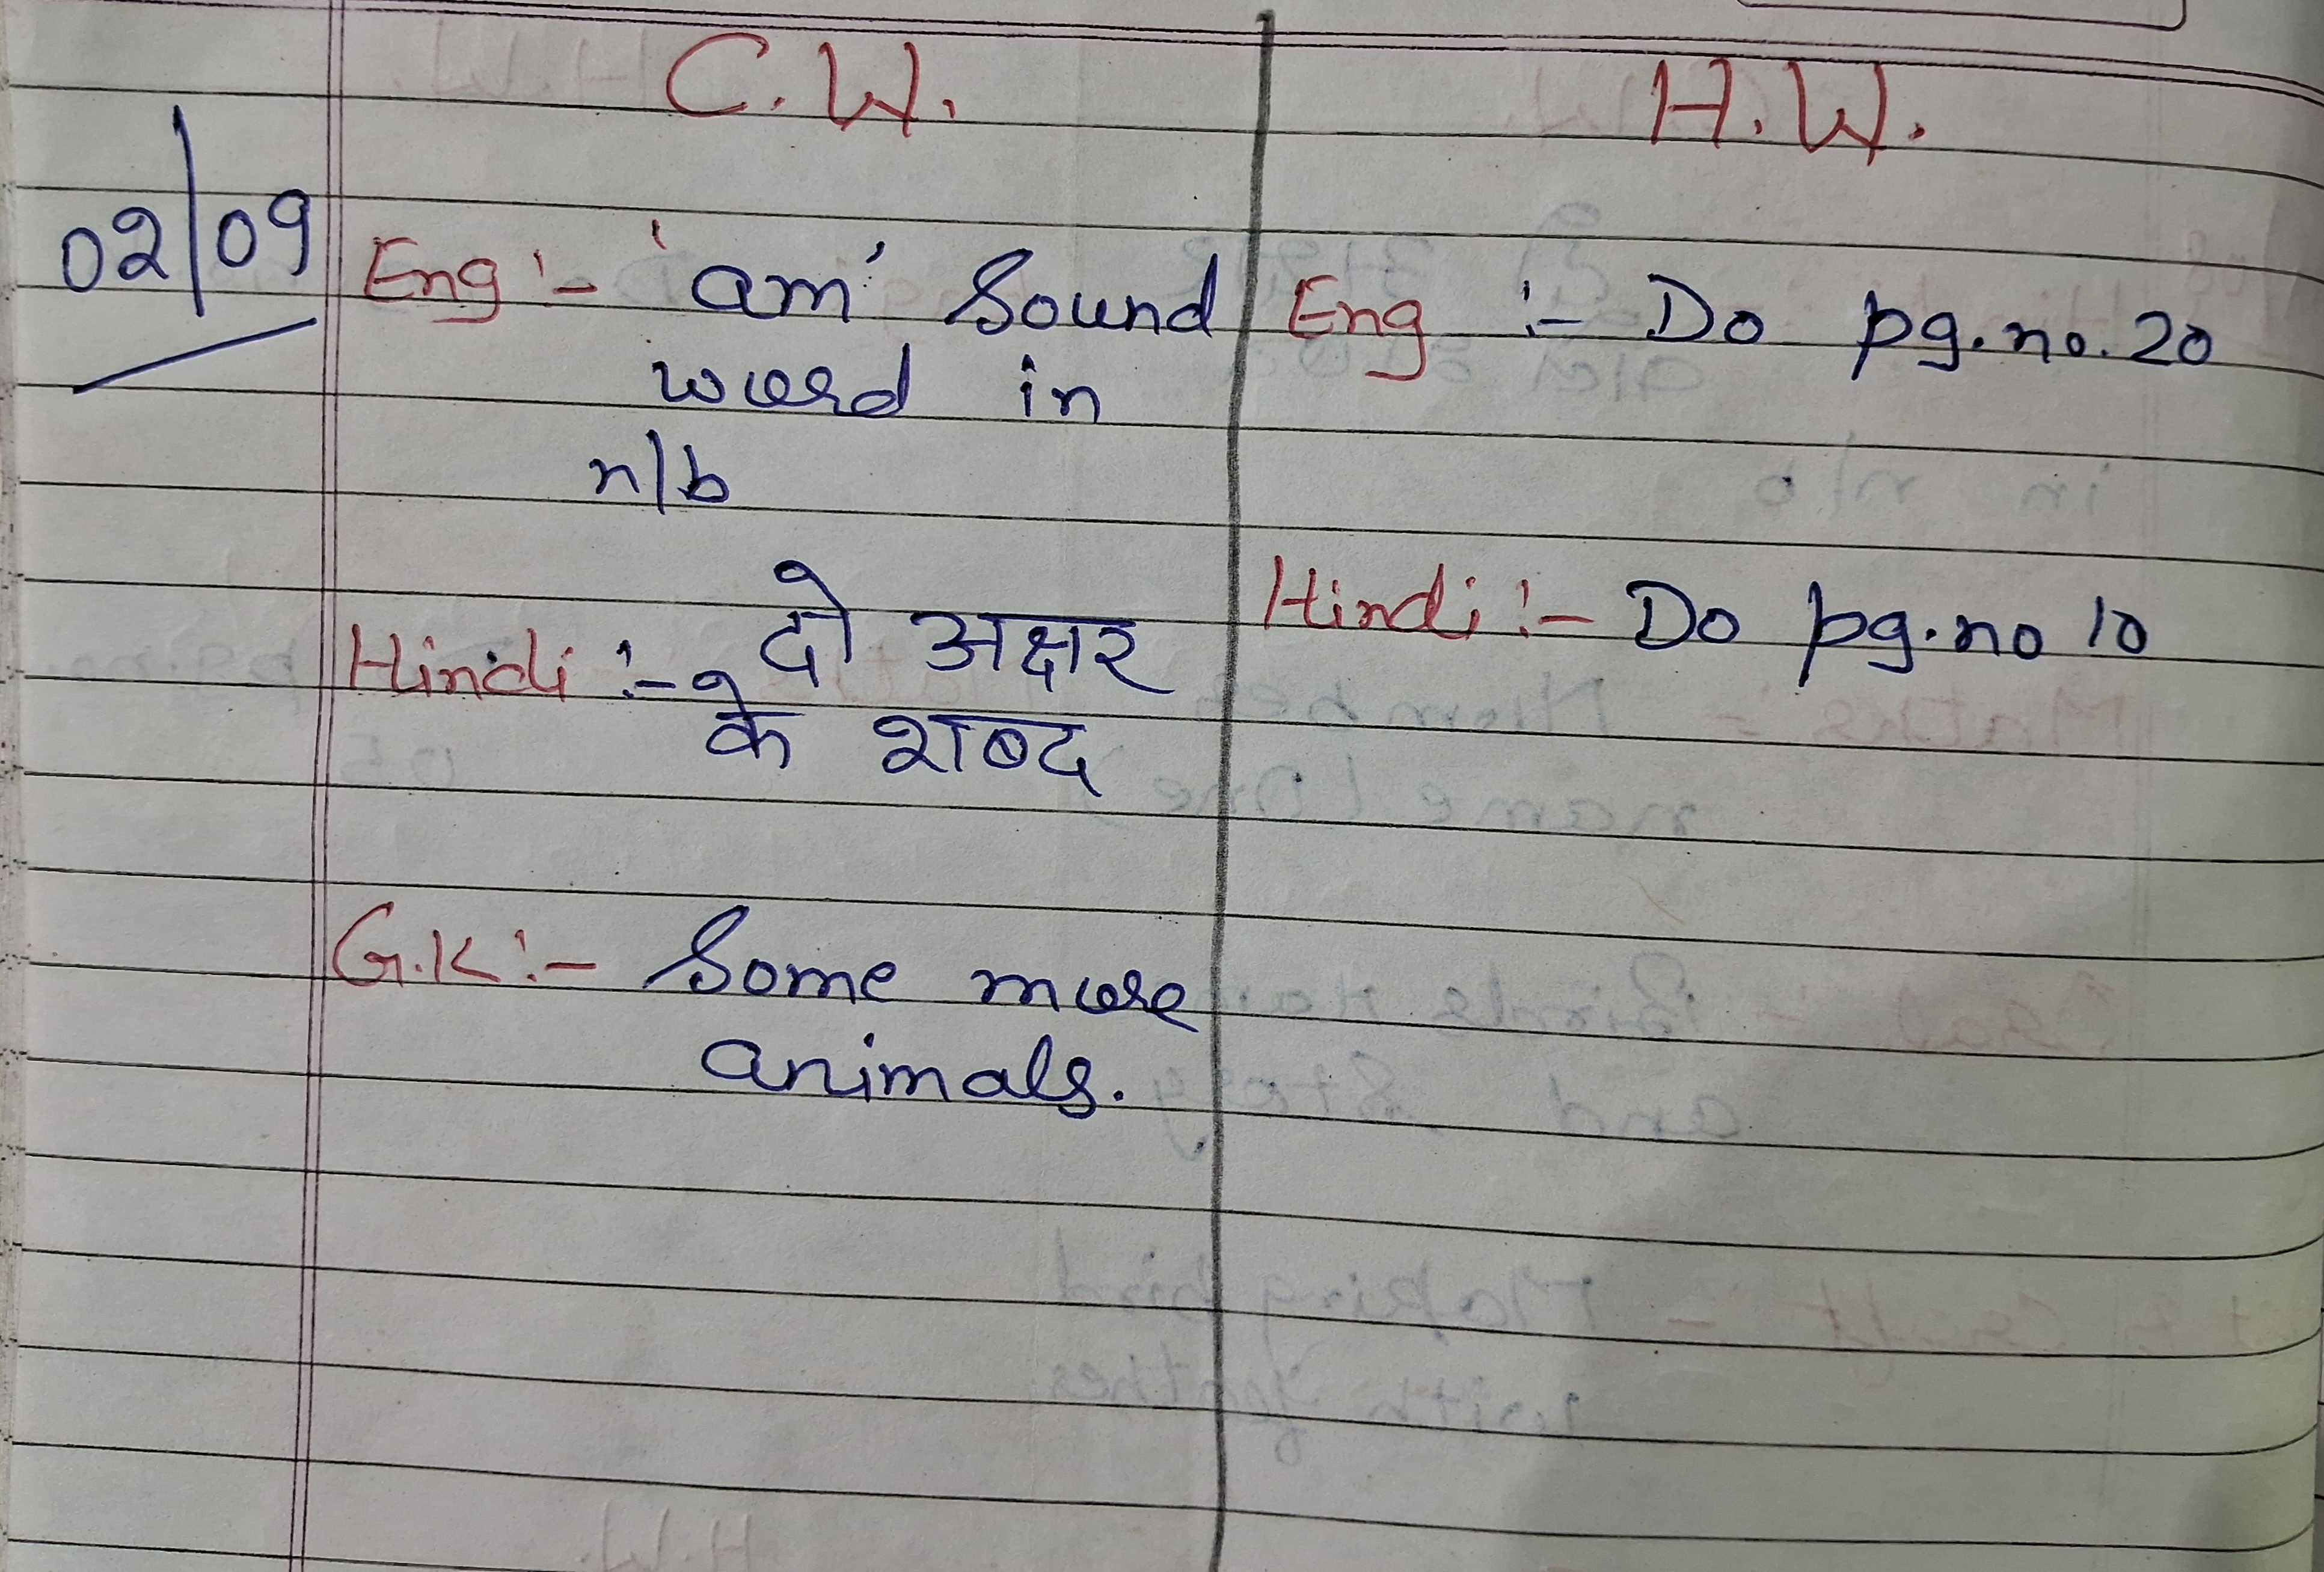 C.W.
02/09 Eng :- 'am' Sound
word in
n/b
Hindi :- दो अक्षर
के शब्द
G.K :- Some more
animals.
H.W.
Eng :- Do pg.no.20
Hindi :- Do pg.no 10